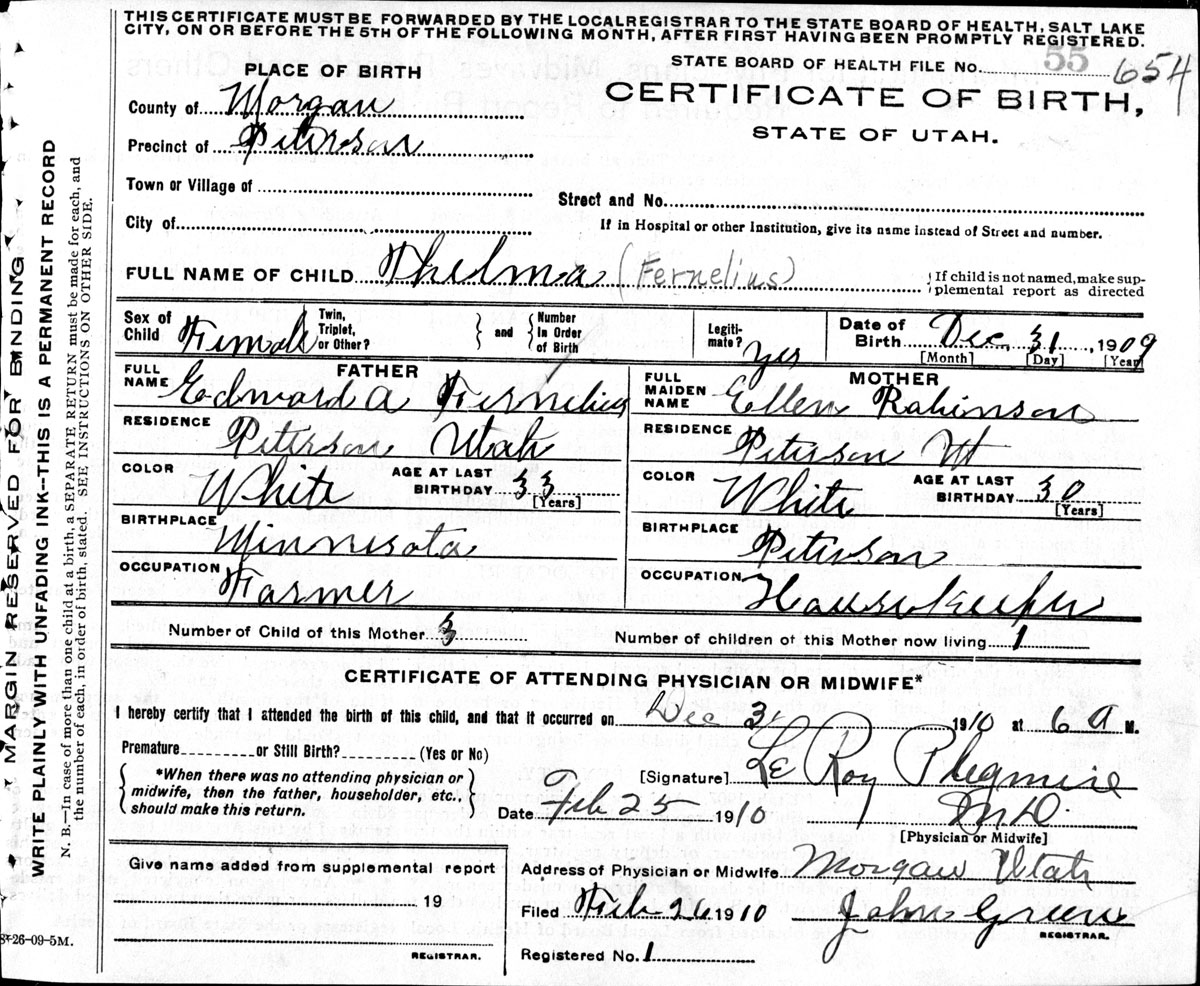 THIS CERTIFICATE MUST BE FORWARDED BY THE LOCAL REGISTRAR TO THE STATE BOARD OF HEALTH, SALT LAKE
CITY, ON OR BEFORE THE 5TH OF THE FOLLOWING MONTH, AFTER FIRST HAVING BEEN PROMPTLY REGISTERED.
STATE BOARD OF HEALTH FILE No. 55 654
PLACE OF BIRTH
CERTIFICATE OF BIRTH,
STATE OF UTAH.
County of Morgan
Precinct of Peterson
Town or Village of
Street and No.
City of
If in Hospital or other Institution, give its name instead of Street and number.
FULL NAME OF CHILD Thelma (Fernelius)
If child is not named, make supplemental report as directed
Sex of Child Female
Twin, Triplet, or Other?
and
Number in Order of Birth
Legitimate? yes
Date of Birth Dec 31, 1909
[Month] [Day] [Year]
FATHER
FULL NAME Edward A Fernelius
RESIDENCE Peterson Utah
COLOR White AGE AT LAST BIRTHDAY 33 [Years]
BIRTHPLACE Minnesota
OCCUPATION Farmer
MOTHER
FULL MAIDEN NAME Ellen Robinson
RESIDENCE Peterson Ut
COLOR White AGE AT LAST BIRTHDAY 30 [Years]
BIRTHPLACE Peterson
OCCUPATION Housekeeper
Number of Child of this Mother 3
Number of children of this Mother now living 1
CERTIFICATE OF ATTENDING PHYSICIAN OR MIDWIFE*
I hereby certify that I attended the birth of this child, and that it occurred on Dec 31 1910 at 6 a M.
Premature or Still Birth? (Yes or No)
*When there was no attending physician or midwife, then the father, householder, etc., should make this return.
[Signature] Le Roy
Date Feb 25 1910 MD
[Physician or Midwife]
Give name added from supplemental report
19
REGISTRAR.
Address of Physician or Midwife Morgan Utah
Filed Feb 26 1910 John Green
REGISTRAR.
Registered No. 1
8-26-09-5M.
MARGIN RESERVED FOR BINDING
WRITE PLAINLY WITH UNFADING INK--THIS IS A PERMANENT RECORD
N. B.—In case of more than one child at a birth, a SEPARATE RETURN must be made for each, and
the number of each, in order of birth, stated. SEE INSTRUCTIONS ON OTHER SIDE.